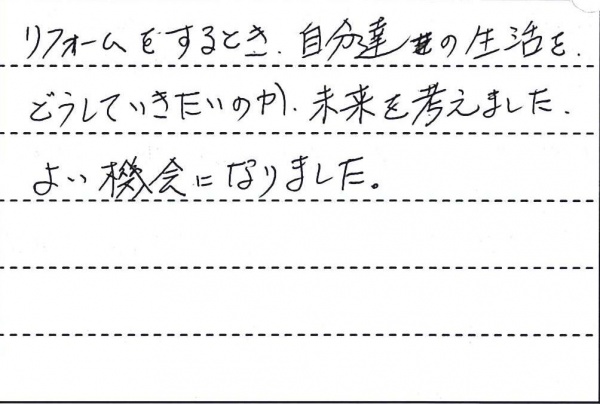 リフォームをするとき、自分達の生活を、
どうしていきたいのか、未来を考えました、
よい機会になりました。